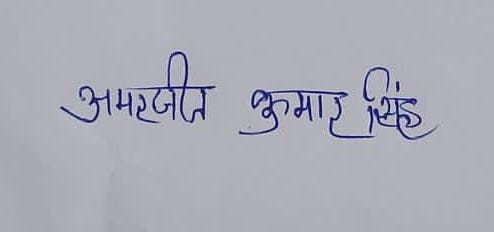 अमरजीत कुमार सिंह